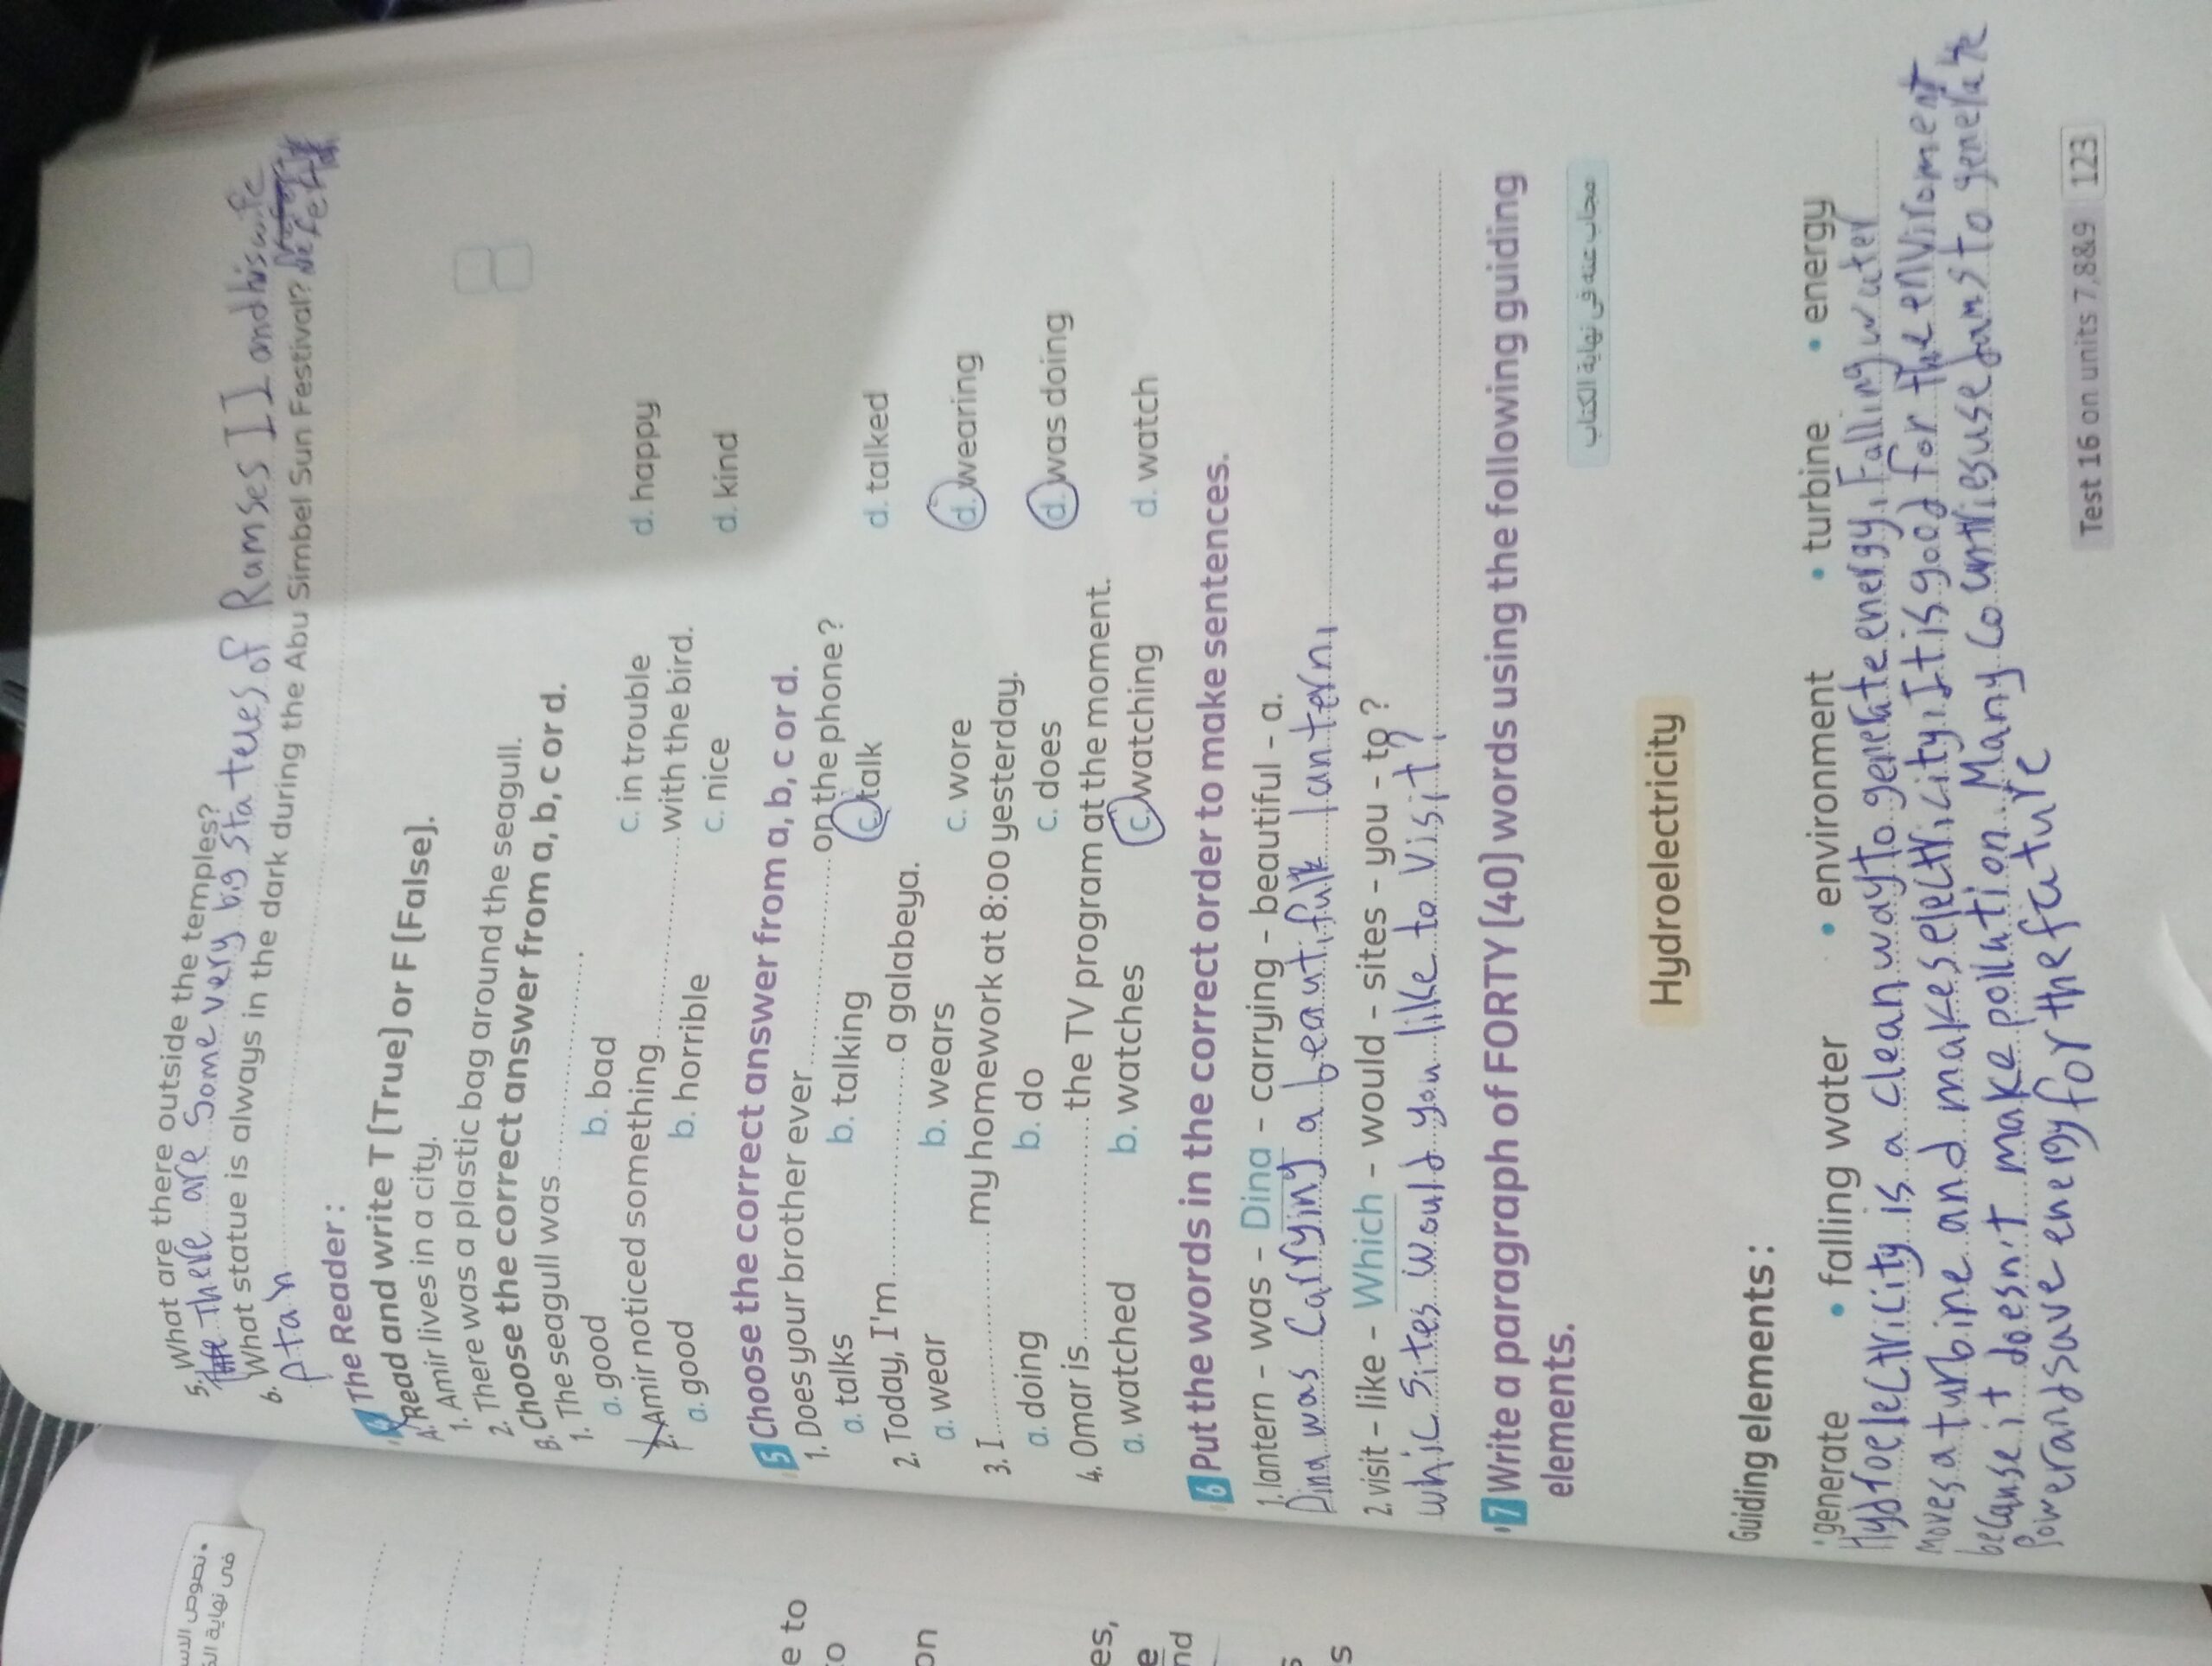 5. What are there outside the temples?
There are some very big statues of Ramses II and his wife
6. What statue is always in the dark during the Abu Simbel Sun Festival?
Ptah
4 The Reader:
A. Read and write T (True) or F (False).
1. Amir lives in a city.
2. There was a plastic bag around the seagull.
B. Choose the correct answer from a, b, c or d.
1. The seagull was .
a. good b. bad c. in trouble d. happy
2. Amir noticed something with the bird.
a. good b. horrible c. nice d. kind
5 Choose the correct answer from a, b, c or d.
1. Does your brother ever on the phone?
a. talks b. talking c. talk d. talked
2. Today, I'm a galabeya.
a. wear b. wears c. wore d. wearing
3. I my homework at 8:00 yesterday.
a. doing b. do c. does d. was doing
4. Omar is the TV program at the moment.
a. watched b. watches c. watching d. watch
6 Put the words in the correct order to make sentences.
1. lantern - was - Dina - carrying - beautiful - a.
Dina was Carrying a beautiful lantern.
2. visit - like - Which - would - sites - you - to?
whic sites would you like to visit?
7 Write a paragraph of FORTY (40) words using the following guiding
elements.
مجاب عنه في نهاية الكتاب
Hydroelectricity
Guiding elements:
• generate • falling water • environment • turbine • energy
Hydroelectricity is a clean way to generate energy, Falling water
moves a turbine and makes electricity, It is good for the enviroment
because it doesn't make pollution. Many countries use dams to generate
power and save energy for the future
Test 16 on units 7,8&9 123
في نهاية
e to
o
on
es,
e
nd
s
s